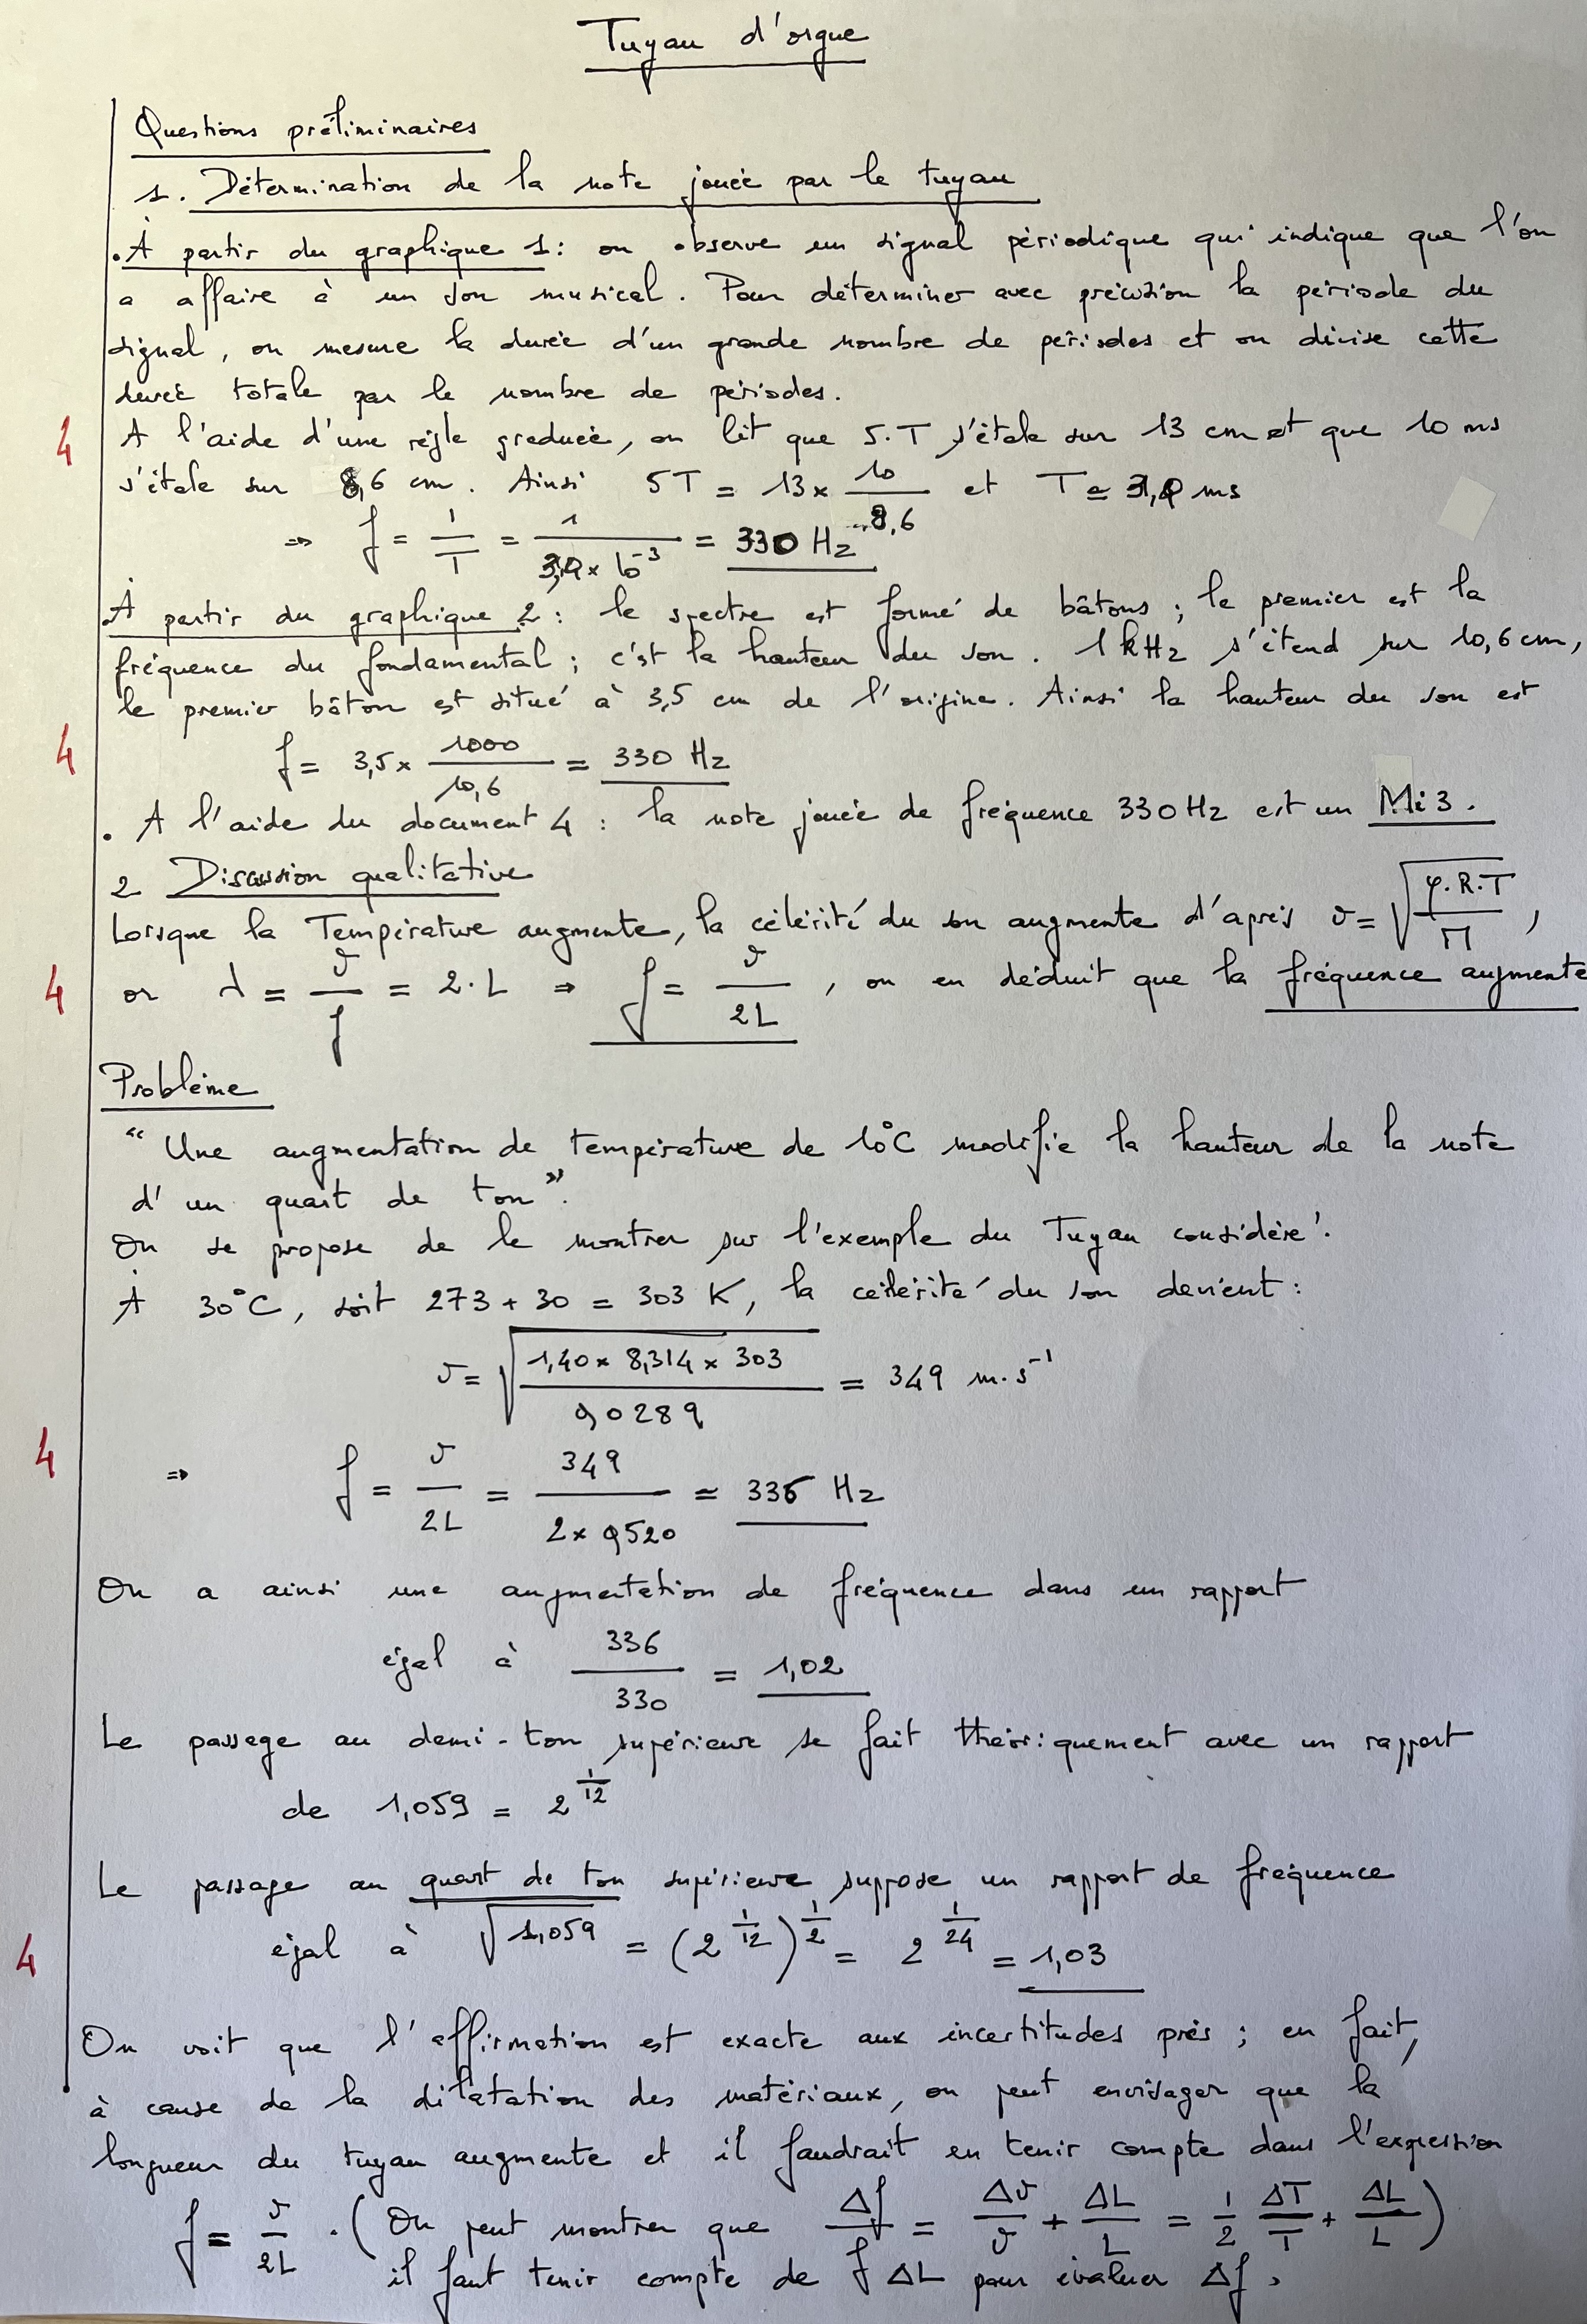 Tuyau d'orgue
Questions préliminaires
1. Détermination de la note jouée par le tuyau
. À partir du graphique 1 : on observe un signal périodique qui indique que l'on
a affaire à un son musical. Pour déterminer avec précision la période du
signal, on mesure la durée d'un grande nombre de périodes et on divise cette
durée totale par le nombre de périodes.
4
A l'aide d'une règle graduée, on lit que 5.T s'étale sur 13 cm et que 10 ms
s'étale sur 8,6 cm. Ainsi 5T = 13 × 10/8,6 et T ≃ 3,0 ms
⇒ f = 1/T = 1/(3,0 × 10⁻³) = 330 Hz
. À partir du graphique 2 : le spectre est formé de bâtons ; le premier est la
fréquence du fondamental ; c'est la hauteur du son. 1 kHz s'étend sur 10,6 cm,
le premier bâton est situé à 3,5 cm de l'origine. Ainsi la hauteur du son est
4
f = 3,5 × 1000/10,6 = 330 Hz
. A l'aide du document 4 : la note jouée de fréquence 330 Hz est un Mi 3.
2 Discussion qualitative
Lorsque la Température augmente, la célérité du son augmente d'après v = √(φ.R.T/M) ,
4
or λ = v/f = 2.L ⇒ f = v/2L , on en déduit que la fréquence augmente
Problème
“ Une augmentation de température de 10°C modifie la hauteur de la note
d'un quart de ton ”.
On se propose de le montrer sur l'exemple du Tuyau considéré.
À 30°C, soit 273 + 30 = 303 K, la célérité du son devient :
v = √(1,40 × 8,314 × 303/0,0289) = 349 m.s⁻¹
4
⇒ f = v/2L = 349/(2 × 0,520) ≃ 336 Hz
On a ainsi une augmentation de fréquence dans un rapport
égal à 336/330 = 1,02
Le passage au demi-ton supérieure se fait théoriquement avec un rapport
de 1,059 = 2^(1/12)
Le passage au quart de ton supérieure suppose un rapport de fréquence
4
égal à √1,059 = (2^(1/12))^(1/2) = 2^(1/24) = 1,03
On voit que l'affirmation est exacte aux incertitudes près ; en fait,
à cause de la dilatation des matériaux, on peut envisager que la
longueur du tuyau augmente et il faudrait en tenir compte dans l'expression
f = v/2L . (On peut montrer que Δf/f = Δv/v + ΔL/L = 1/2 ΔT/T + ΔL/L)
il faut tenir compte de f ΔL pour évaluer Δf.